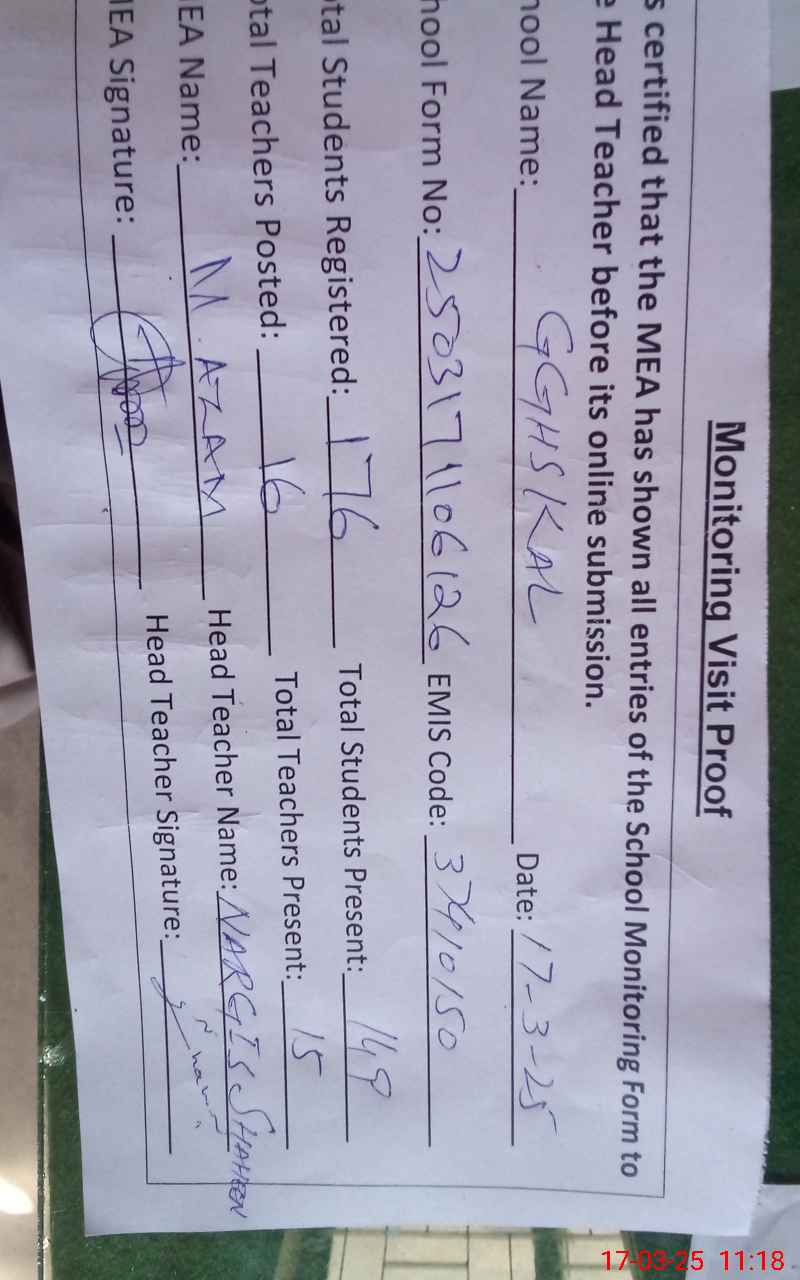 Monitoring Visit Proof
s certified that the MEA has shown all entries of the School Monitoring Form to
e Head Teacher before its online submission.
hool Name: GGHS KAL Date: 17-3-25
hool Form No: 2503171106126 EMIS Code: 37410150
otal Students Registered: 176 Total Students Present: 149
otal Teachers Posted: 16 Total Teachers Present: 15
MEA Name: M. AZAM Head Teacher Name: NARGIS SHAHEEN
MEA Signature: Head Teacher Signature:
17-03-25 11:18